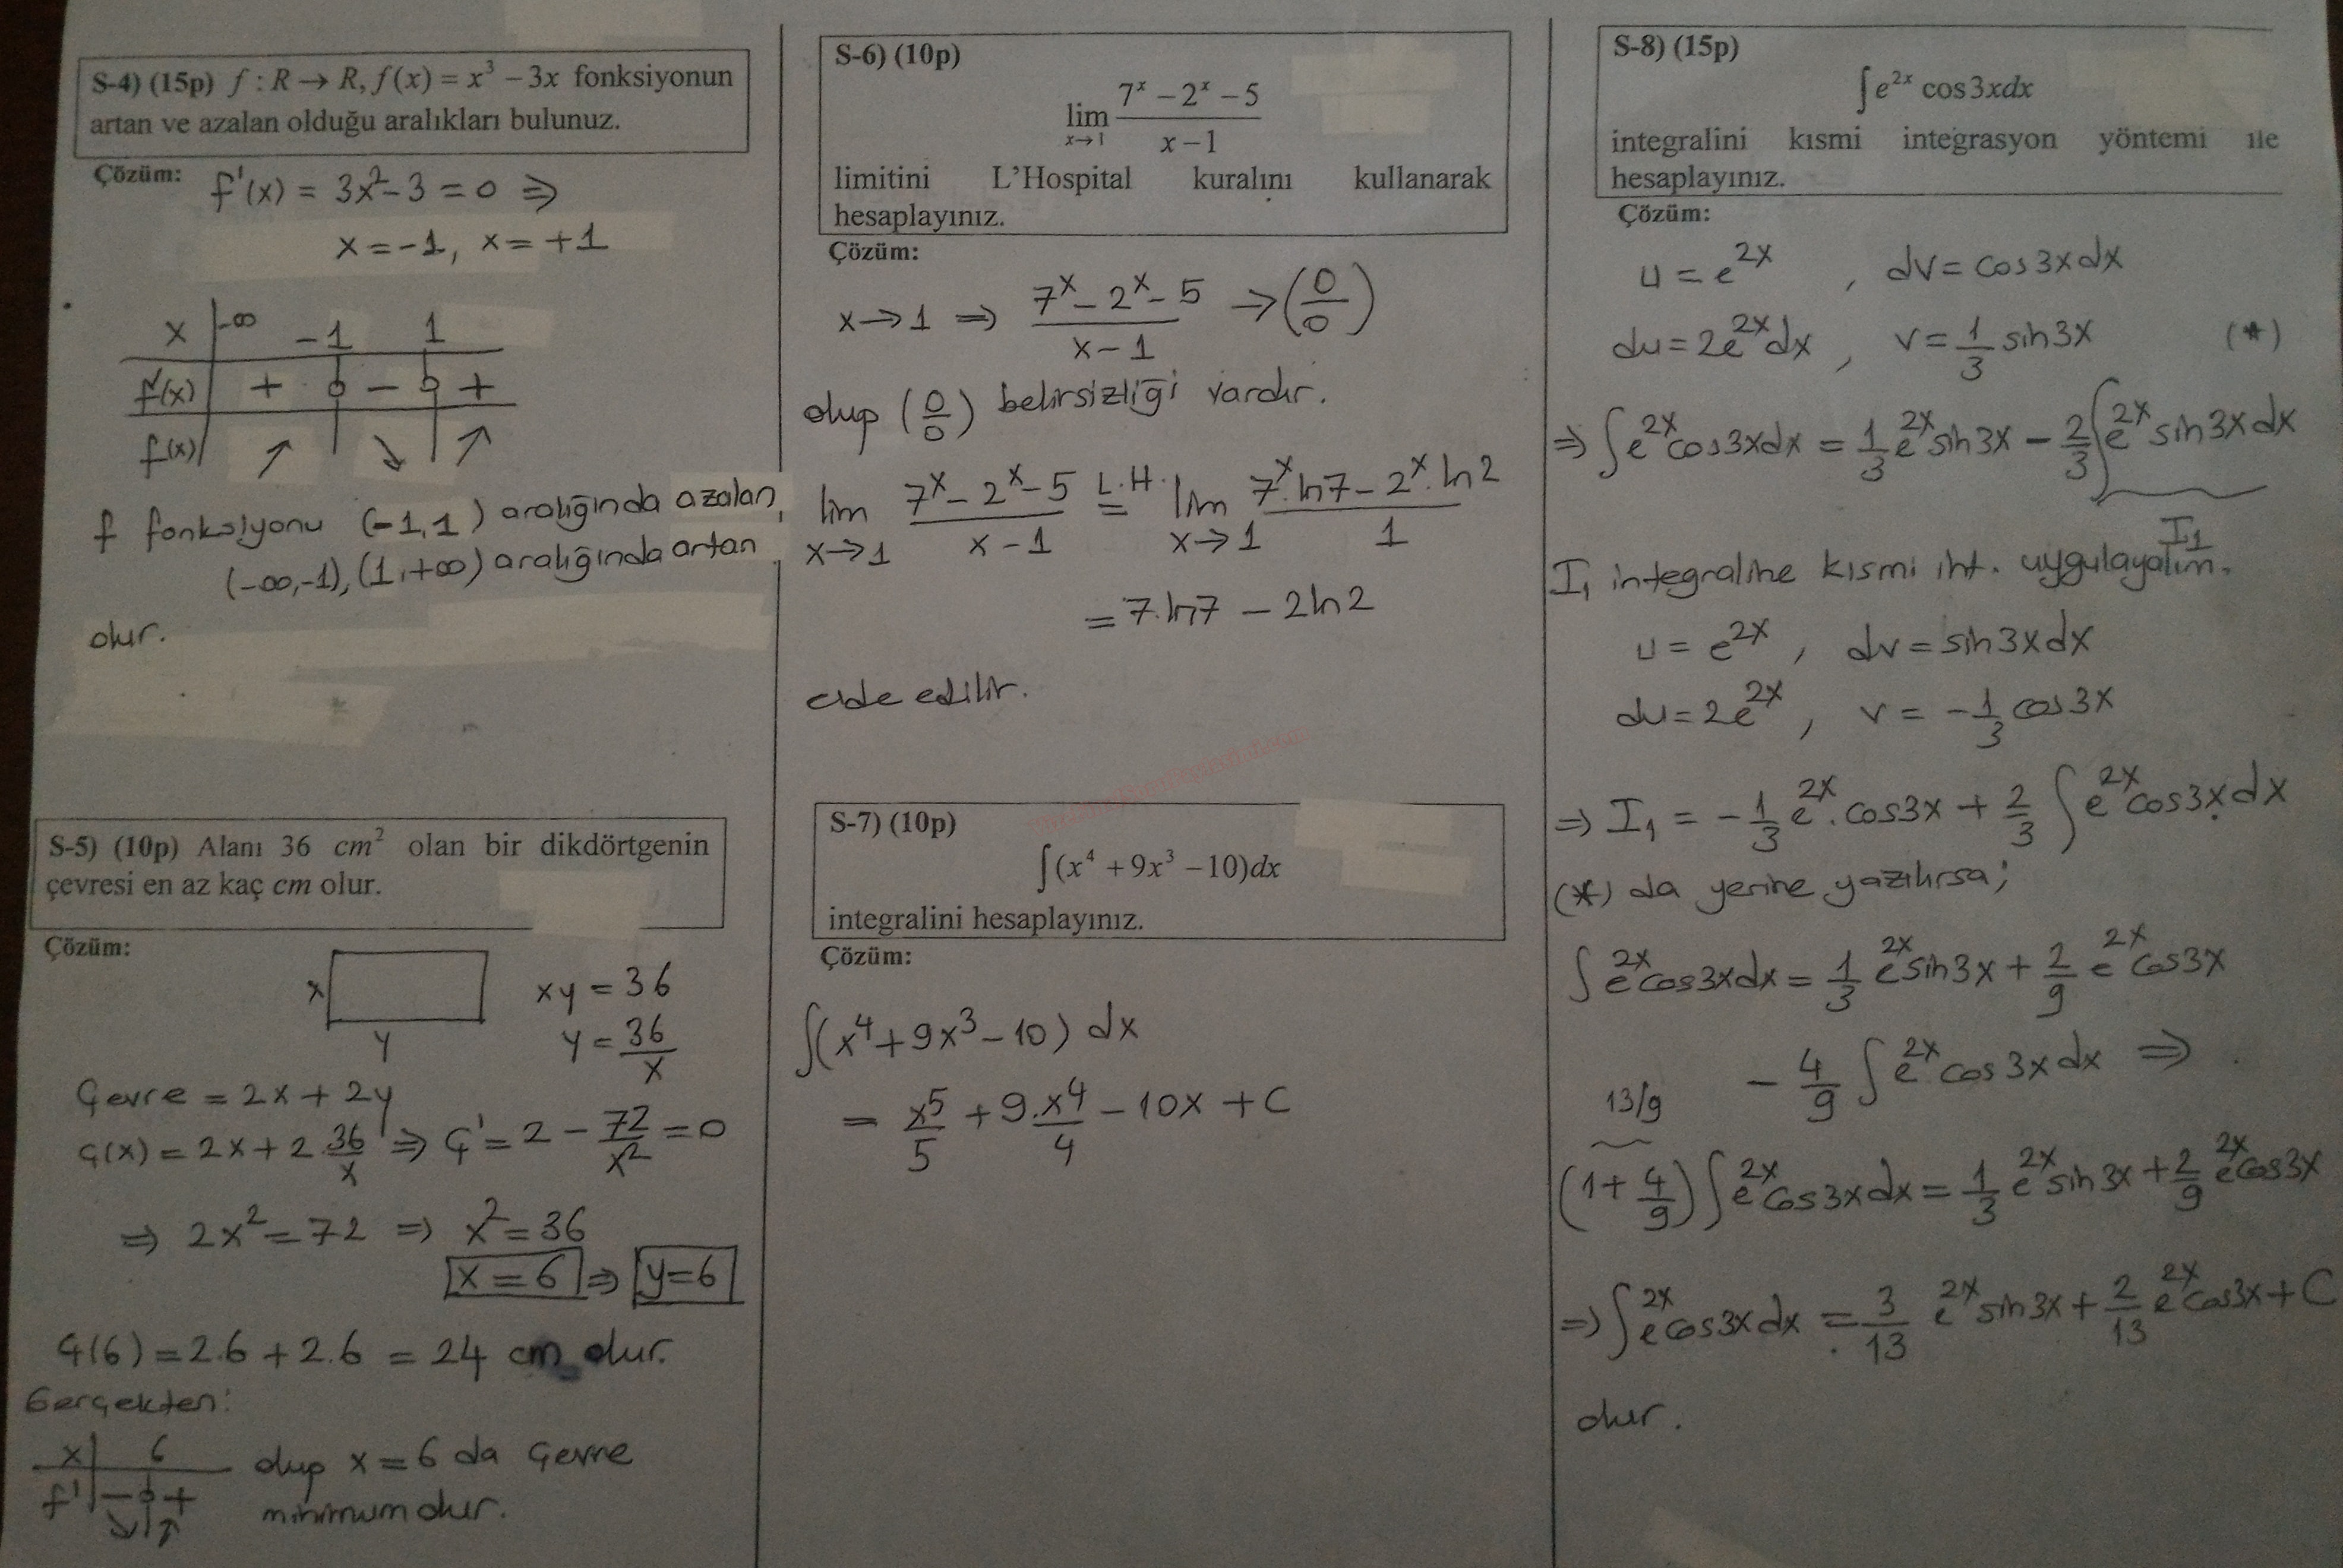 S-4) (15p) f : R → R, f(x) = x³ − 3x fonksiyonun
artan ve azalan olduğu aralıkları bulunuz.
Çözüm: f'(x) = 3x² − 3 = 0 ⇒
x = −1, x = +1
x | −∞ −1 1
f'(x) | + 0 − 0 +
f(x) | ↗ | ↘ | ↗
f fonksiyonu (−1,1) aralığında azalan,
(−∞,−1), (1,+∞) aralığında artan
olur.
S-5) (10p) Alanı 36 cm² olan bir dikdörtgenin
çevresi en az kaç cm olur.
Çözüm:
x
y
xy = 36
y = 36/x
Çevre = 2x + 2y
Ç(x) = 2x + 2.36/x ⇒ Ç' = 2 − 72/x² = 0
⇒ 2x² = 72 ⇒ x² = 36
x = 6 ⇒ y = 6
Ç(6) = 2.6 + 2.6 = 24 cm olur.
Gerçekten:
x | 6
f' | − 0 +
↘ | ↗
olup x = 6 da Çevre
minimum olur.
S-6) (10p)
lim x→1 (7ˣ − 2ˣ − 5)/(x − 1)
limitini L'Hospital kuralını kullanarak
hesaplayınız.
Çözüm:
x → 1 ⇒ (7ˣ − 2ˣ − 5)/(x − 1) → (0/0)
olup (0/0) belirsizliği vardır.
lim x→1 (7ˣ − 2ˣ − 5)/(x − 1) L.H. = lim x→1 (7ˣ.ln7 − 2ˣ.ln2)/1
= 7.ln7 − 2ln2
elde edilir.
S-7) (10p)
∫(x⁴ + 9x³ − 10)dx
integralini hesaplayınız.
Çözüm:
∫(x⁴ + 9x³ − 10) dx
= x⁵/5 + 9.x⁴/4 − 10x + C
S-8) (15p)
∫e²ˣ cos3xdx
integralini kısmi integrasyon yöntemi ile
hesaplayınız.
Çözüm:
u = e²ˣ , dv = cos3xdx
du = 2e²ˣdx , v = 1/3 sin3x (*)
⇒ ∫e²ˣcos3xdx = 1/3 e²ˣsin3x − 2/3 ∫e²ˣsin3xdx
I₁
I₁ integraline kısmi int. uygulayalım.
u = e²ˣ , dv = sin3xdx
du = 2e²ˣ , v = −1/3 cos3x
⇒ I₁ = −1/3 e²ˣ.cos3x + 2/3 ∫e²ˣcos3xdx
(*) da yerine yazılırsa;
∫e²ˣcos3xdx = 1/3 e²ˣsin3x + 2/9 e²ˣcos3x
− 4/9 ∫e²ˣcos3xdx ⇒
13/9
(1 + 4/9)∫e²ˣcos3xdx = 1/3 e²ˣsin3x + 2/9 e²ˣcos3x
⇒ ∫e²ˣcos3xdx = 3/13 e²ˣsin3x + 2/13 e²ˣcos3x + C
olur.